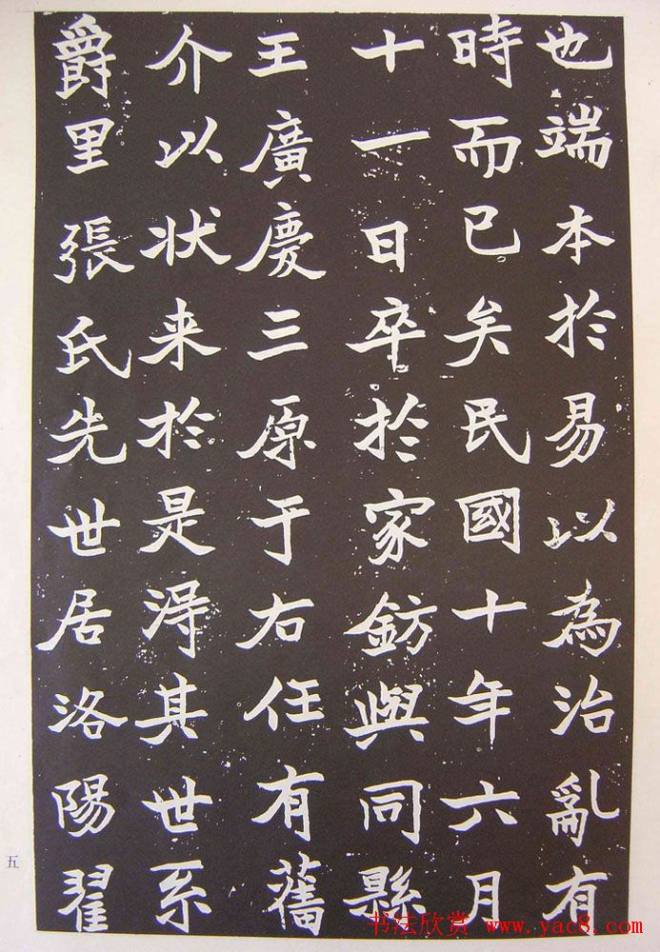 也端本於易以為治亂有
時而已矣民國十年六月
十一日卒於家鈁與同縣
王廣慶三原于右任有舊
介以状来於是淂其世系
爵里張氏先世居洛陽翟
五
书法欣赏 www.yac8.com